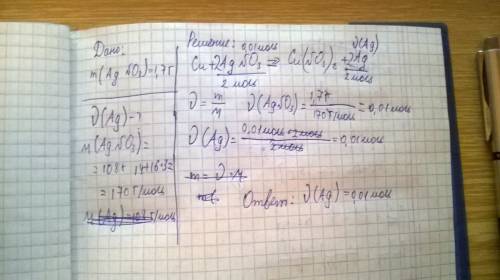 Дано:
m(AgNO₃)=1,7г
ν(Ag)-?
M(AgNO₃)=
=108+14+16·3=
=170г/моль
M(Ag)=108г/моль
Решение: 0,01моль ν(Ag)
Cu+2AgNO₃=Cu(NO₃)₂+2Ag
2моль 2моль
ν=m/M ν(AgNO₃)=1,7г/170г/моль=0,01моль
ν(Ag)=0,01моль·2моль/2моль=0,01моль
m=ν·M
Ответ: ν(Ag)=0,01моль